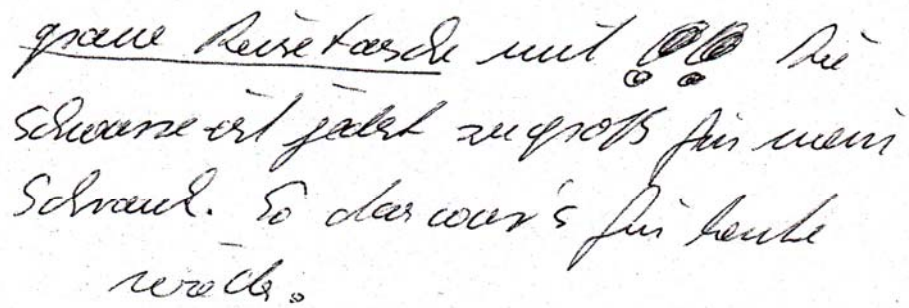 graue Reisetasche mit !! Die
schwarze ist jetzt zu groß für mein
Schrank. So das war's für heute